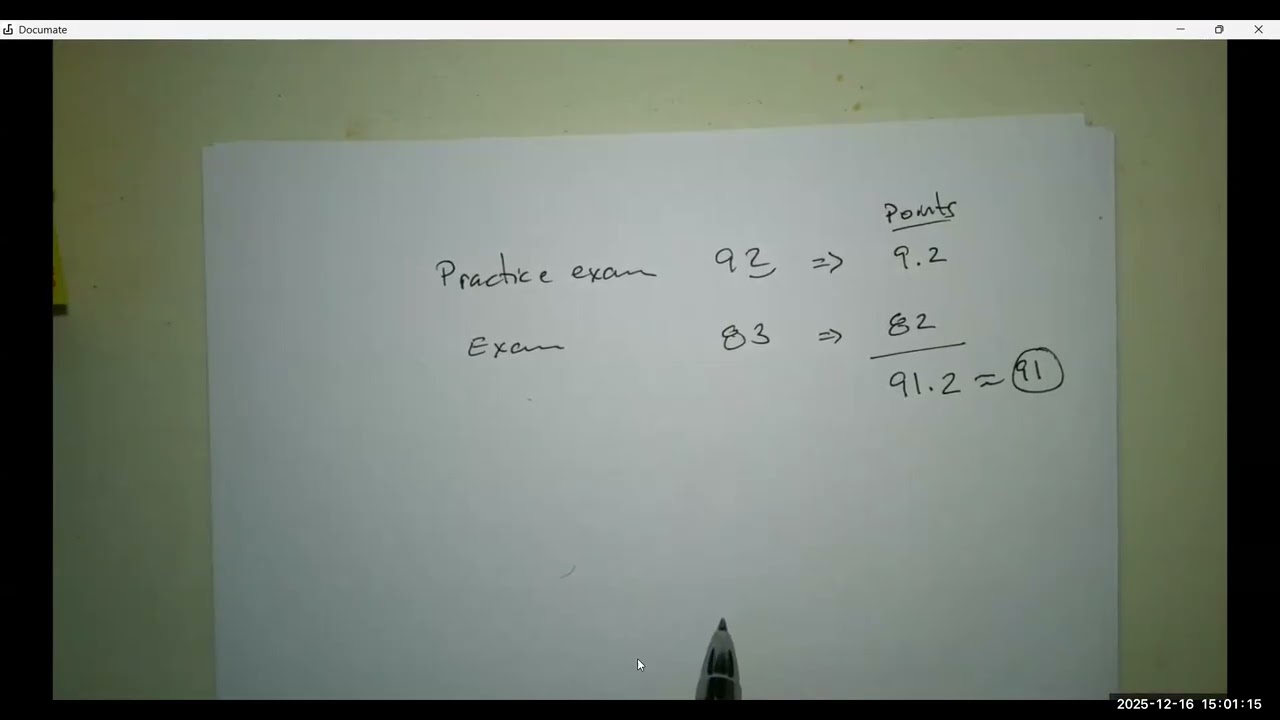 Documate
Points
Practice exam 92 => 9.2
Exam 83 => 82
91.2 ≈ 91
2025-12-16 15:01:15